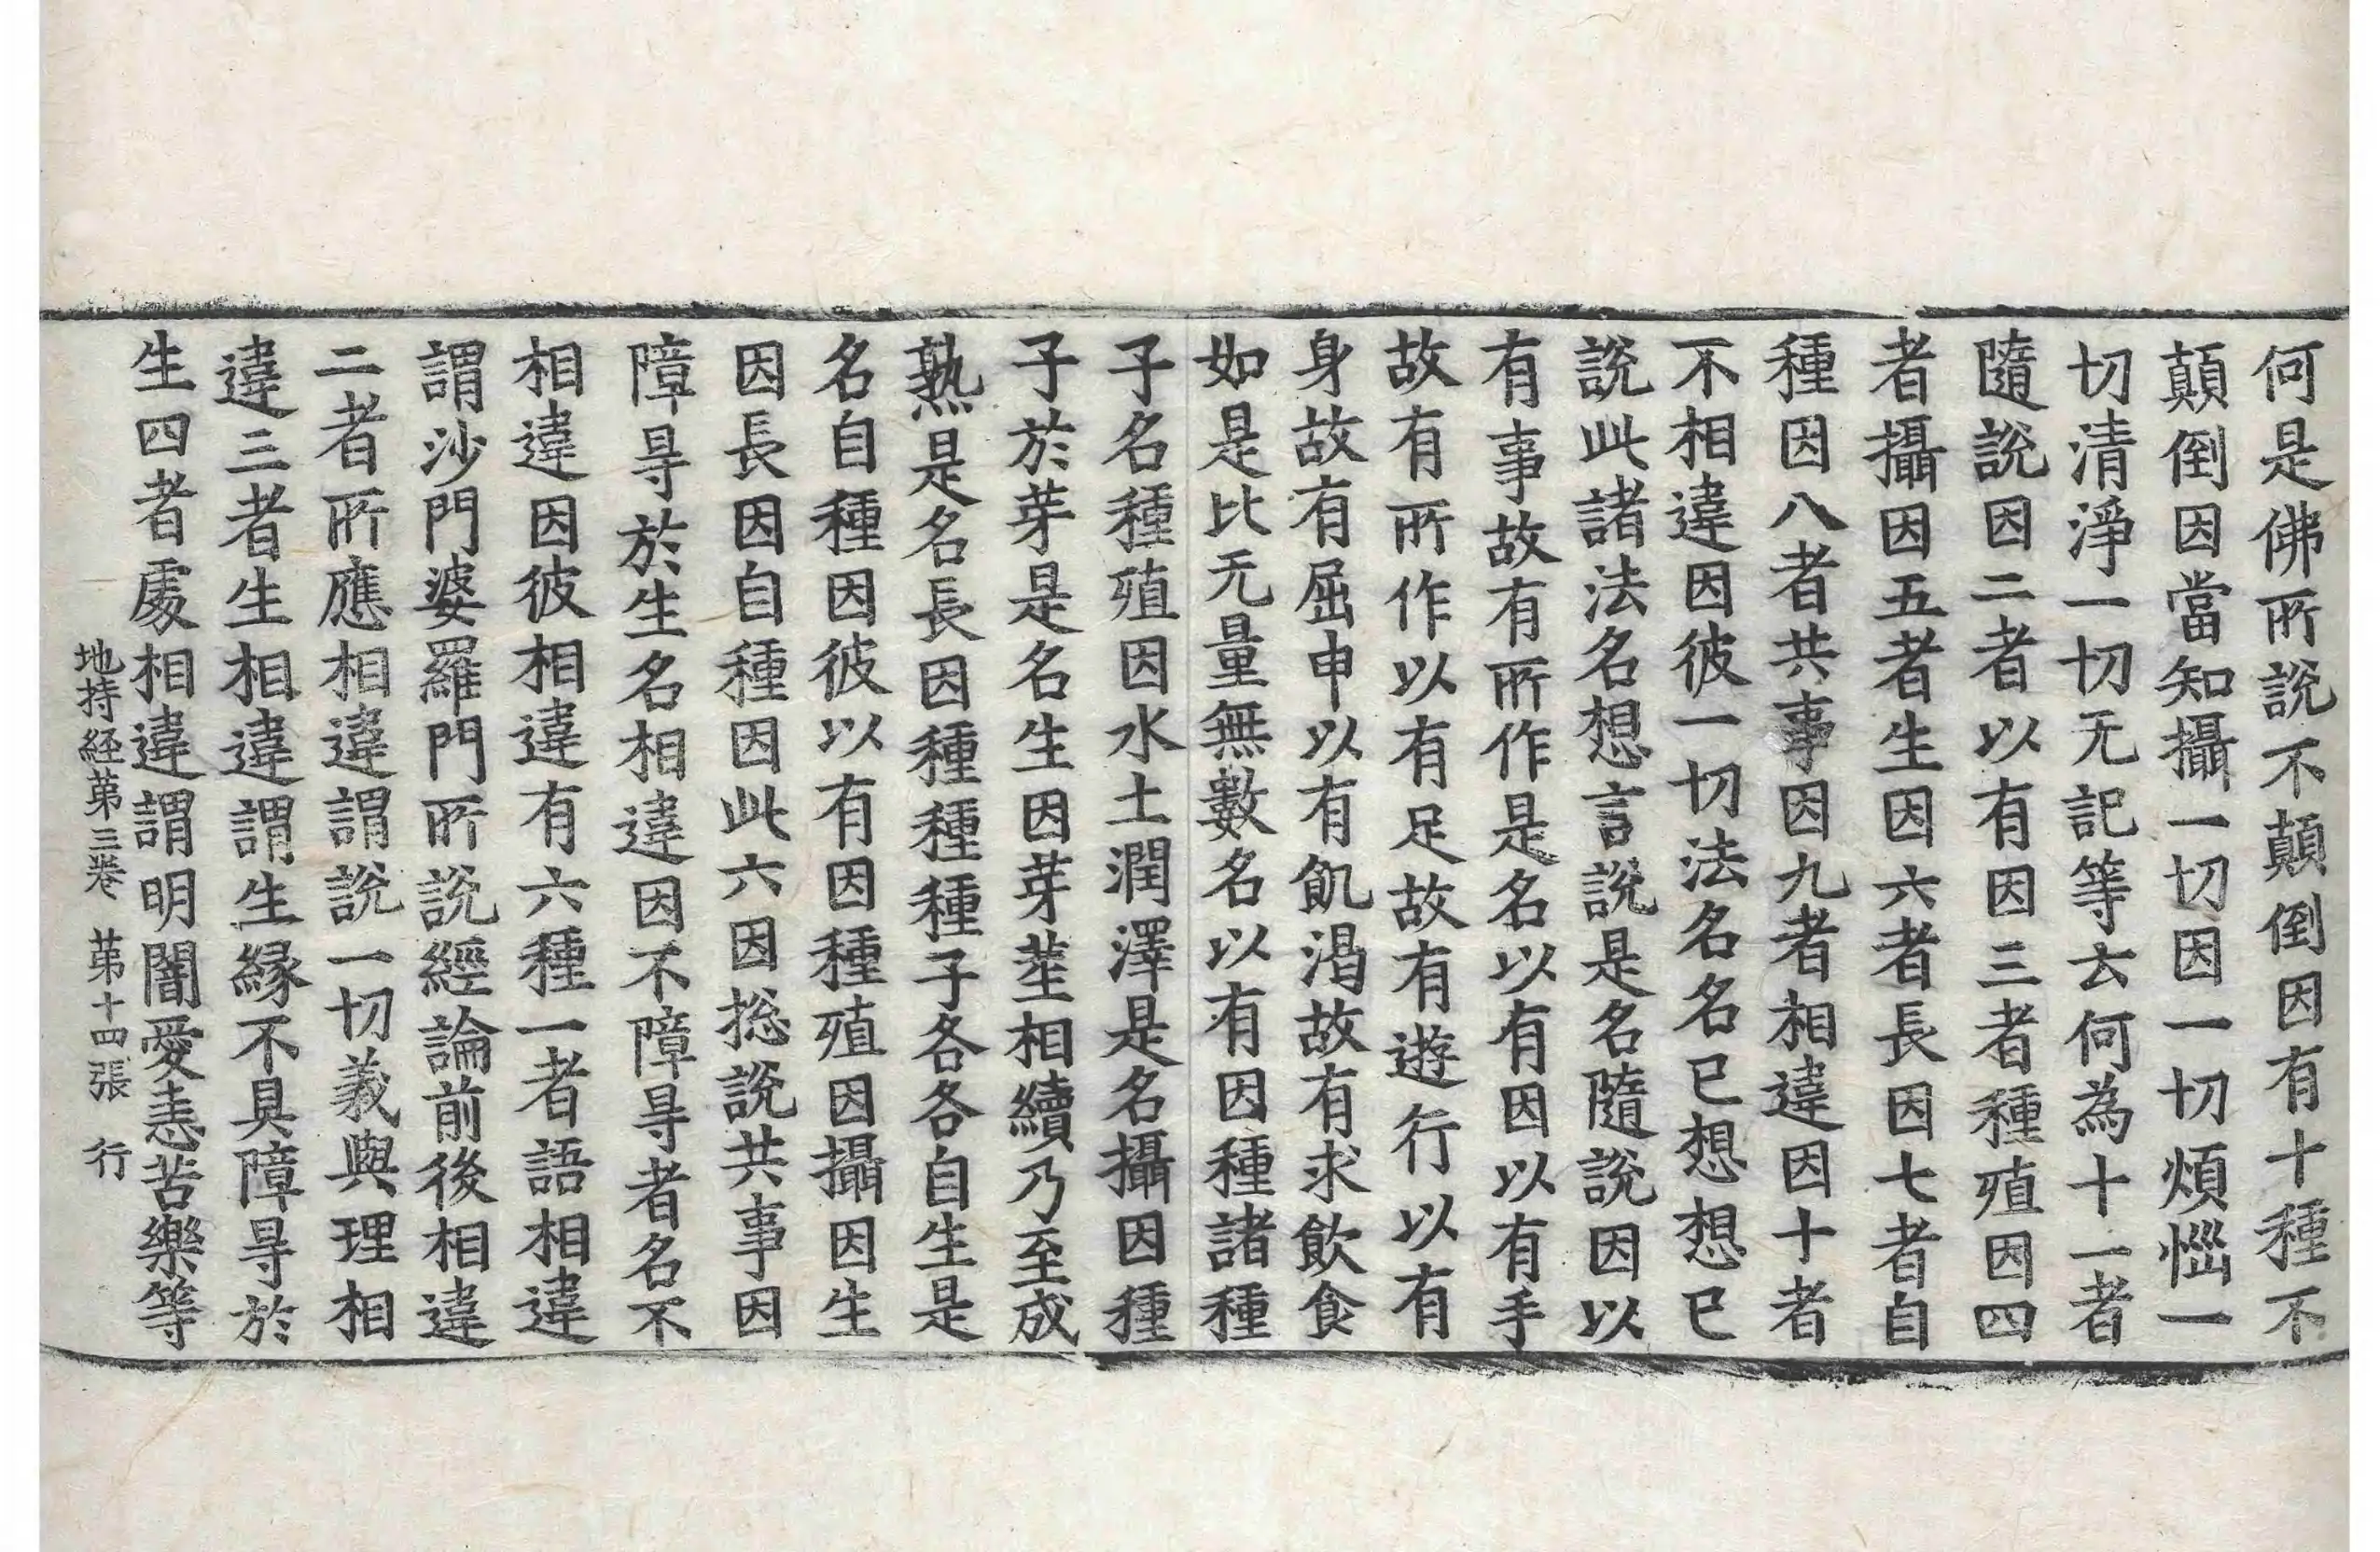 何是佛所說不顛倒因有十種不
顛倒因當知攝一切因一切煩惱一
切清淨一切无記等云何為十一者
隨說因二者以有因三者種殖因四
者攝因五者生因六者長因七者自
種因八者共事因九者相違因十者
不相違因彼一切法名名已想想已
說此諸法名想言說是名隨說因以
有事故有所作是名以有因以有手
故有所作以有足故有遊行以有
身故有屈申以有飢渴故有求飲食
如是比无量無數名以有因種諸種
子名種殖因水土潤澤是名攝因種
子於芽是名生因芽莖相續乃至成
熟是名長因種種種子各各自生是
名自種因彼以有因種殖因攝因生
因長因自種因此六因捴說共事因
障㝵於生名相違因不障㝵者名不
相違因彼相違有六種一者語相違
謂沙門婆羅門所說經論前後相違
二者所應相違謂說一切義與理相
違三者生相違謂生緣不具障㝵於
生四者處相違謂明闇愛恚苦樂等
地持経苐三卷 苐十四張 行